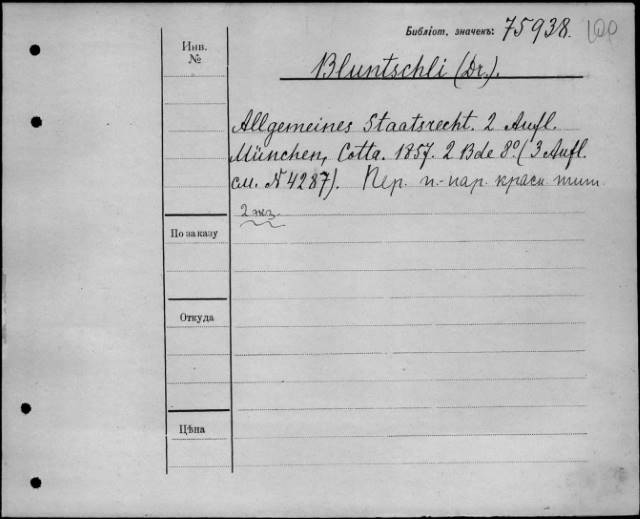 Библіот. значекъ: 75938.
Инв.
№
Bluntschli (Dr.).
Allgemeines Staatsrecht. 2 Aufl.
München, Cotta. 1857. 2 Bde 8º. (3 Aufl.
см. N 4287). Пер. п.-пар. красн. тит.
2 экз.
По заказу
Откуда
Цѣна